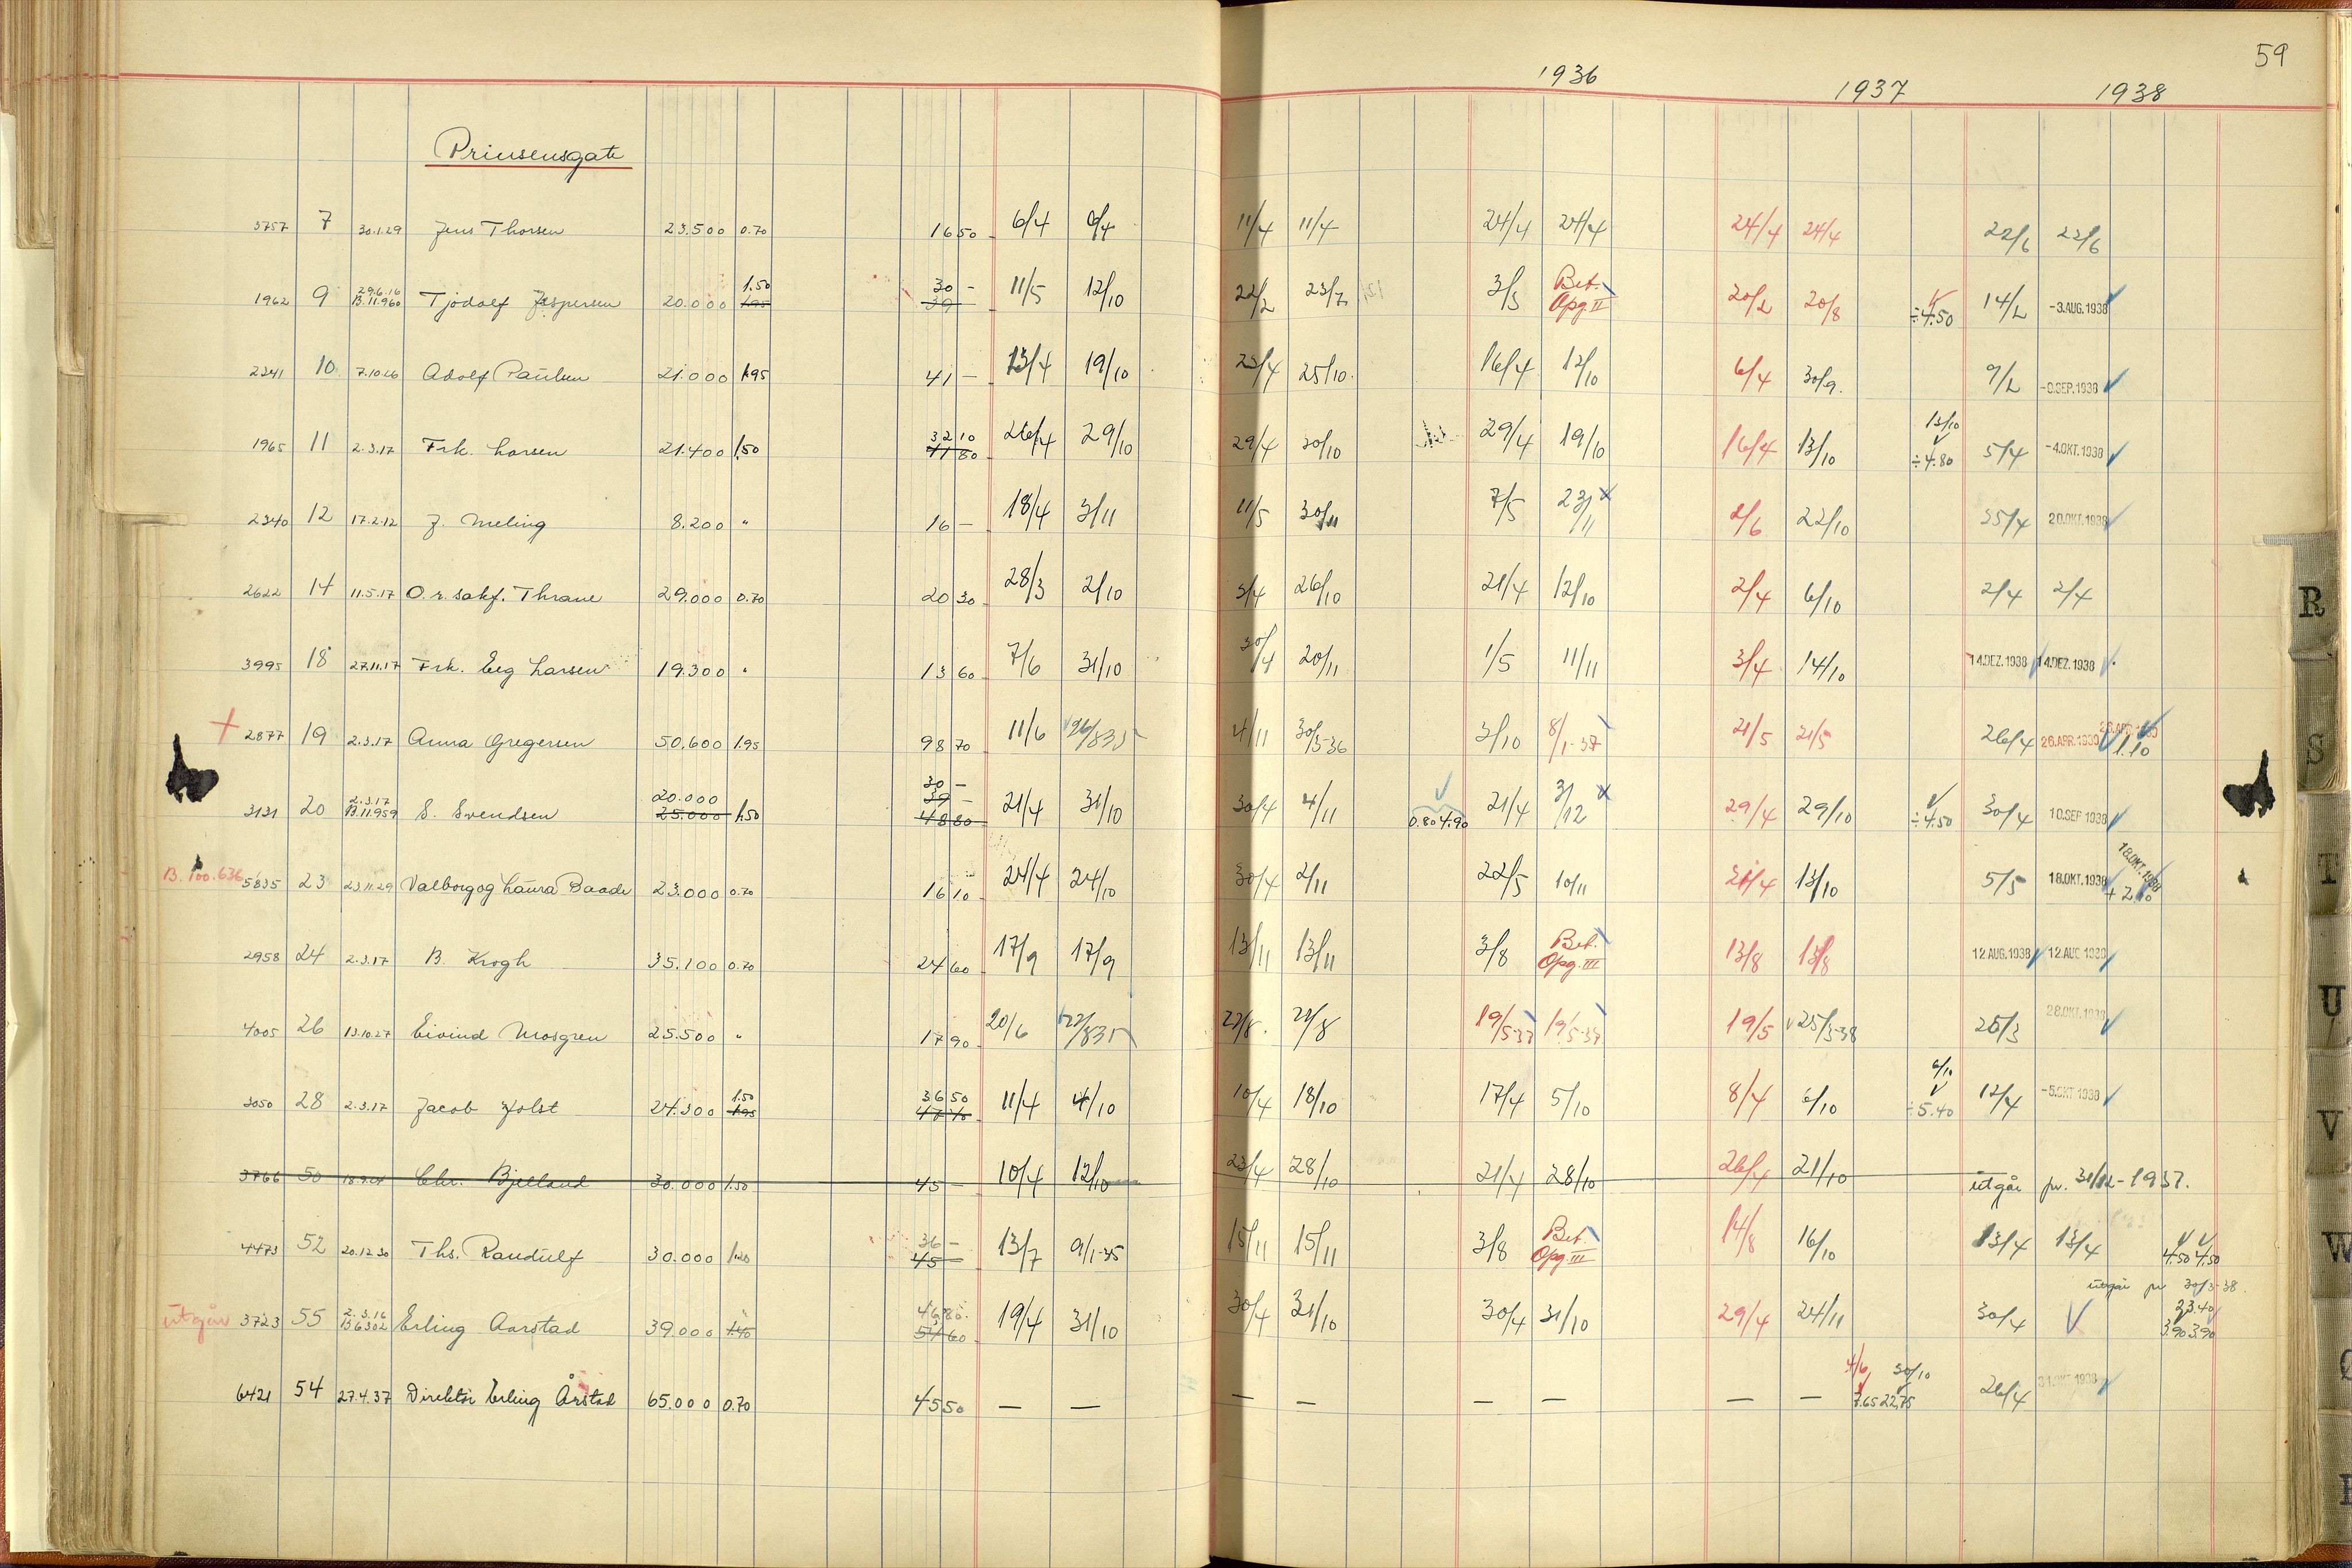 59
1936 1937 1938
Prinsensgate
3757 7 30.1.29 Jens Thorsen 23.500 0.70 16 50 6/4 6/4 11/4 11/4 24/4 24/4 24/4 24/4 22/6 22/6
1962 9 29.6.16 B.11.960 Tjodolf Jespersen 20.000 1.50 1.95 30 - 39 - 11/5 12/10 22/2 23/7 3/3 Bet. Opg. II 20/2 20/8 ÷4.50 14/2 -3.AUG.1938
2241 10 7.10.26 Adolf Paulsen 21.000 1.95 41 - 13/4 19/10 23/4 25/10 16/4 12/10 6/4 30/9 9/2 SEP.1938
1965 11 2.3.17 Frk. Larsen 21.400 1.50 32 10 41 80 26/4 29/10 29/4 30/10 29/4 19/10 16/4 13/10 13/10 ÷4.80 5/4 -4.OKT.1938
2340 12 17.2.12 J. Meling 8.200 " 16 - 18/4 3/11 11/5 30/11 7/5 23/11 2/6 22/10 25/4 20.OKT.1938
2622 14 11.5.17 O.r.sakf. Thrane 29.000 0.70 20 30 28/3 2/10 5/4 26/10 21/4 12/10 2/4 6/10 2/4 2/4
3995 18 27.11.17 Frk. Eeg Larsen 19.300 " 13 60 7/6 31/10 30/4 20/11 1/5 11/11 3/4 14/10 14.DEZ.1938 14.DEZ.1938
+ 2877 19 2.3.17 Anna Gregersen 50.600 1.95 98 70 11/6 26/8 35 4/11 30/3-36 3/10 8/1-37 21/5 21/5 26/4 26.APR.1939 26.APR. 1.10
3131 20 2.3.17 B.11.959 S. Svendsen 20.000 25.000 1.50 30 - 39 - 48 80 21/4 31/10 30/4 4/11 0.80 4.90 21/4 3/12 29/4 29/10 ÷4.50 30/4 10.SEP 1938
B.100.636 5835 23 23.11.29 Valborg og Laura Baade 23.000 0.70 16 10 24/4 24/10 30/4 2/11 22/5 10/11 21/4 13/10 5/5 18.OKT.1938 18.OKT.1938 + 2.10
2958 24 2.3.17 B. Krogh 35.100 0.70 24 60 17/9 17/9 13/11 13/11 3/8 Bet. Opg. III 13/8 13/8 12.AUG.1938 12.AUG 1938
4005 26 13.10.27 Eivind Mosgren 25.500 " 17 90 20/6 22/8 35 22/8 21/8 19/5-37 19/5-37 19/5 25/3-38 25/3 28.OKT.1938
3050 28 2.3.17 Jacob Holst 24.300 1.50 1.95 36 50 47 40 11/4 4/10 10/4 18/10 17/4 5/10 8/4 6/10 6/10 ÷5.40 12/4 -5.OKT 1938
3766 50 Chr. Bjelland 30.000 1.50 45 - 10/4 12/10 23/4 28/10 21/4 28/10 26/4 21/10 utgår pr. 31/12-1937.
4473 52 20.12.30 Ths. Randulf 30.000 1.20 36 - 45 - 13/7 9/1-35 15/11 15/11 3/8 Bet. Opg. III 14/8 16/10 13/4 13/4 4.50 4.50
utgår 3723 55 2.3.16 B.6302 Erling Aarstad 39.000 1.40 46 80 54 60 19/4 31/10 30/4 31/10 30/4 31/10 29/4 24/11 30/4 utgår pr 30/3-38. 23.40 3.90 3.90
6421 54 27.4.37 Direktör Erling Årstad 65.000 0.70 45 50 — — — — — — — — 4/6 7.65 30/10 22.75 26/4 31.OKT 1938
R
S
T
U
V
W